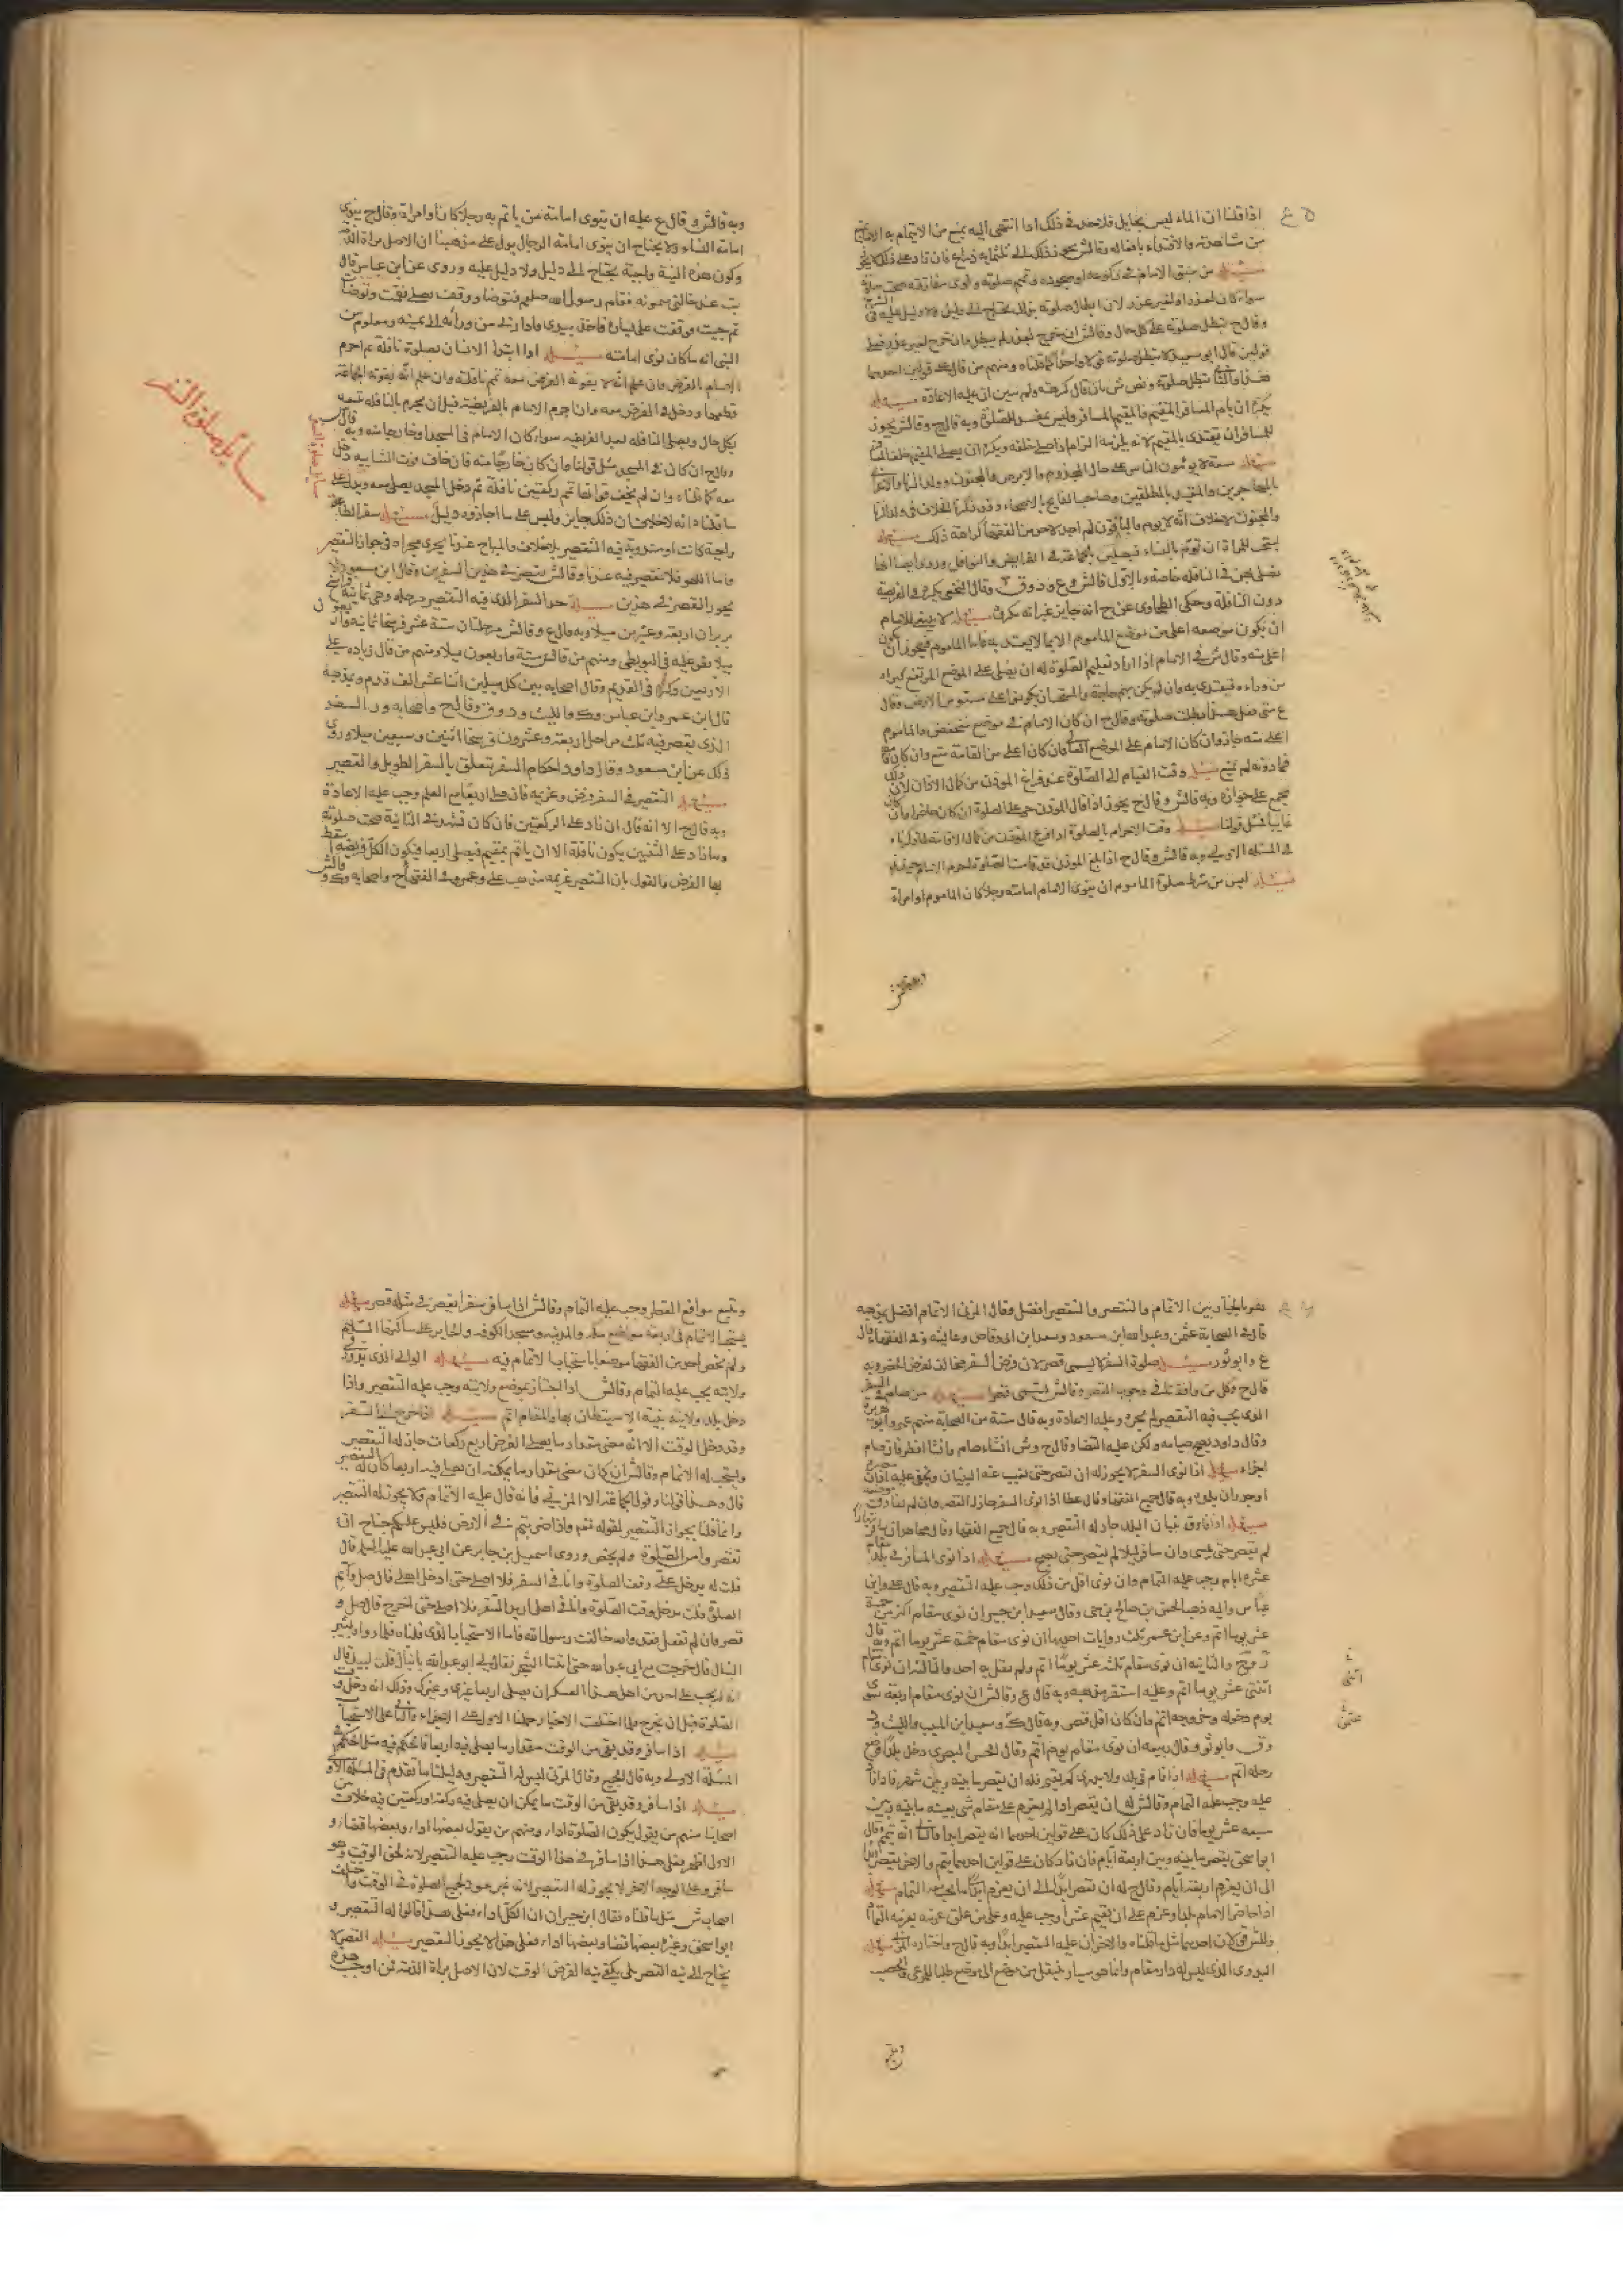 اذا قلنا ان الماء ليس بحايل فلا حد في ذلك اذا انتهى اليه يمنع من الايتمام به الا ما يمنع
من مشاهدته والاقتداء بافعاله وقال ش يجوز ذلك الى ثلثمايه ذراع فان زاد على ذلك لا يجوز
مسئله من سبق الامام في ركوعه او سجوده وتمم صلوته ونوى مفارقته صحت صلوته
سواء كان لعذر او لغير عذر لان ابطال صلوته بذلك يحتاج الى دليل ولا دليل عليه في الشرع
وقال ح تبطل صلوته على كل حال وقال ش ان خرج لعذر لم يبطل وان خرج لغير عذر فعلى
قولين قال ابو سعيد لا تبطل صلوته قولا واحدا كما قلناه ومنهم من قال على قولين احدهما
هذا والثاني تبطل صلوته ونص ش بان قال كرهته ولم يبين ان عليه الاعادة مسئله
يكره ان يام المسافر المقيم والمقيم المسافر وليس بمفسد للصلوة وبه قال ح وقال ش يجوز
للمسافر ان يقتدى بالمقيم لانه يلزمه التمام اذا صلى خلفه ويكره ان يصلى المقيم خلف المسافر
مسئله سبعة لا يؤمون الناس على حال المجذوم والابرص والمجنون وولد الزنا والاعرابي
بالمهاجرين والمقيد بالمطلقين وصاحب الفالج بالاصحاء وقد ذكرنا الخلاف في ولد الزنا
والمجنون لا خلاف انه لا يوم والباقون لم اجد لاحد من الفقهاء كراهة ذلك مسئله
يستحب للمراة ان تؤم بالنساء فيصلين جماعة في الفرايض والنوافل وروى ايضا انها
تصلى بهن في النافله خاصة وبالاول قال ش وع ود وق وقال النخعي يكره في الفريضة
دون النافلة وحكى الطحاوى عن ح انه جايز غير انه مكروه مسئله لا ينبغى للامام
ان يكون موضعه اعلى من موضع الماموم الا بما لا يعتد به فاما الماموم فيجوز ان يكون
اعلى منه وقال ش في الامام اذا اراد تعليم الصلوة له ان يصلى على الموضع المرتفع ليراه
من وراءه فيقتدى به وان لم يكن بهم حاجة فالمستحب ان يكونوا على مستو من الارض وقال
ع متى فعل هذا بطلت صلوته وقال ح ان كان الامام في موضع منخفض والماموم
اعلى منه جاز وان كان الامام على الموضع العالى فان كان اعلى من القامة منع وان كان قامة
فما دونه لم يمنع مسئله وقت القيام الى الصلوة عند فراغ المؤذن من كمال الاذان لان ذلك
مجمع على جوازه وبه قال ش وقال ح يجوز اذا قال المؤذن حى على الصلوة ان كان حاضرا وان كان
غايبا مثل قولنا مسئله وقت الاحرام بالصلوة اذا فرغ المؤذن من كمال الاقامة لما ذكرناه
في المسئلة الاولى وبه قال ش وقال ح اذا بلغ المؤذن قد قامت الصلوة احرم الامام حينئذ
مسئله ليس من شرط صلوة الماموم ان ينوى الامام امامته رجلا كان الماموم او امراة
وبه قال ش
وبه قال ش وقال ع عليه ان ينوى امامة من ياتم به رجلا كان او امراة وقال ح ينوى
امامة النساء ولا يحتاج ان ينوى امامة الرجال يدل على مذهبنا ان الاصل براة الذمة
وكون هذه النية واجبة يحتاج الى دليل ولا دليل عليه وروى عن ابن عباس قال
بت عند خالتى ميمونه فقام رسول الله صلعم فتوضا ووقف يصلى فقمت وتوضات
ثم جيت فوقفت على يساره فاخذ بيدى فادارنى من ورائه الى يمينه ومعلوم من
النبى انه ما كان نوى امامته مسئله اذا ابتدأ الانسان بصلوة نافلة ثم احرم
الامام بالفرض فان علم انه لا يفوته الفرض معه تمم نافلته وان علم انه يفوته الجماعة
قطعها ودخل في الفرض معه وان احرم الامام بالفريضة قبل ان يحرم بالنافله تبعه
بكل حال ويصلى النافله بعد الفريضه سواء كان الامام في المسجد او خارجا منه وبه قال ش
وقال ح ان كان في المسجد مثل قولنا وان كان خارجا منه فان خاف فوت الثانيه دخل
معه كما قلناه وان لم يخف فواتها تمم ركعتين نافلة ثم دخل المسجد يصلى معه ويدل على
ما قلناه انه لا خلاف ان ذلك جايز وليس على ما اجازوه دليل مسئله سفر الطاعة
واجبة كانت او مندوبة فيه التقصير بلا خلاف والمباح عندنا يجرى مجراه في جواز التقصير
واما اللهو فلا تقصير فيه عندنا وقال ش يقصر في هذين السفرين وقال ابن مسعود لا
يجوز القصر في هذين مسئله حد السفر الذى فيه التقصير مرحله وهى ثمانية فراسخ
بريدان اربعة وعشرون ميلا وبه قال ع وقال ش مرحلتان ستة عشر فرسخا ثمانيه واربعون
ميلا نص عليه في البويطى ومنهم من قال ستة واربعون ميلا ومنهم من قال زياده على
الاربعين ذكره في القديم وقال اصحابه بين كل ميلين اثنا عشر الف قدم وبمذهبه
قال ابن عمر وابن عباس وك والليث ود وق وقال ح واصحابه ور السفر
الذى يقصر فيه ثلث مراحل اربعة وعشرون فرسخا اثنين وسبعين ميلا وروى
ذلك عن ابن مسعود وقال داود احكام السفر تتعلق بالسفر الطويل والقصير
مسئله التقصير في السفر فرض وعزيمه فان صلى اربعا مع العلم وجب عليه الاعادة
وبه قال ح الا انه قال ان زاد على الركعتين فان كان تشهد في الثانية صحت صلوته
وما زاد على الثنتين يكون نافلة الا ان ياتم بمقيم فيصلى اربعا فيكون الكل فريضه اسقط
بها الفرض والقول بان التقصير عزيمه مذهب على وعمر وفي الفقهاء ح واصحابه وك وقال ش
مسايل صلوة السفر
هو بالخيار بين الاتمام والتقصير والتقصير افضل وقال المزنى الاتمام افضل وبمذهبه
قال في الصحابة عثمن وعبد الله بن مسعود وسعد ابن ابى وقاص وعايشه وفي الفقهاء قال
ع وابو ثور مسئله صلوة السفر لا يسمى قصرا لان فرض السفر مخالف لفرض الحضر وبه
قال ح وكل من وافقنا في وجوب القصر وقال ش تسمى قصرا مسئله من صام في السفر
الذى يجب فيه التقصير لم يجزه وعليه الاعادة وبه قال ستة من الصحابة منهم عمر وابو هريرة
وقال داود يصح صيامه ولكن عليه القضا وقال ح وش ان شاء صام وان شاء افطر فان صام
اجزاه مسئله اذا نوى السفر لا يجوز له ان يقصر حتى يغيب عنه البنيان ويخفى عليه اذان مصره
او جدران بلده وبه قال جميع الفقهاء وقال عطا اذا نوى السفر جاز له القصر وان لم يفارق موضعه
مسئله اذا فارق بنيان البلد جاز له التقصير وبه قال جميع الفقها وقال مجاهد ان سافر نهارا
لم يقصر حتى يمسى وان سافر ليلا لم يقصر حتى يصبح مسئله اذا نوى المسافر في بلد مقام
عشره ايام وجب عليه التمام وان نوى اقل من ذلك وجب عليه التقصير وبه قال على وابن
عباس واليه ذهب الحسن بن صالح بن حى وقال سعيد ابن جبير ان نوى مقام اكثر من خمسة
عشر يوما اتم وعن ابن عمر ثلث روايات احديها ان نوى مقام خمسة عشر يوما اتم وبه قال
ر وح والثانيه ان نوى مقام ثلثة عشر يوما اتم ولم يقل به احد والثالثة ان نوى مقام
اثنى عشر يوما اتم وعليه استقر مذهبه وبه قال ع وقال ش ان نوى مقام اربعة سوى
يوم دخوله وخروجه اتم وان كان اقل قصر وبه قال ك وسعيد ابن المسيب والليث ود
وق وابو ثور وقال ربيعه ان نوى مقام يوم اتم وقال الحسن البصرى دخل بلدا فوضع
رحله اتم مسئله اذا قام في بلد ولا يدرى كم يقيم فله ان يقصر ما بينه وبين شهر فاذا زاد
عليه وجب عليه التمام وقال ش له ان يقصر اذا لم يعزم على مقام شى بعينه ما بينه وبين
سبعه عشر يوما فان زاد على ذلك كان على قولين احدهما انه يقصر ابدا والثانى انه يتمم وقال
ابو اسحق يقصر ما بينه وبين اربعة ايام فان زاد كان على قولين احدهما يتمم والاخر يقصر ابدا
الى ان يعزم اربعة ايام وقال ح له ان يقصر ابدا الى ان يعزم ما يجب معه التمام مسئله
اذا حاصر الامام بلدا وعزم على ان يقيم عشرا وجب عليه وعلى من علق عزمه بعزمه التمام
وللش قولان احدهما مثل ما قلناه والاخر ان عليه التقصير ابدا وبه قال ح واختاره المزنى مسئله
البدوى الذى ليس له دار مقام وانما هو سيار ينتقل من موضع الى موضع طلبا للمرعى والخصب
ويتبع
ويتبع مواقع القطر وجب عليه التمام وقال ش اذا سافر سفرا يقصر في مثله قصر مسئله
يستحب الاتمام في اربعه مواضع مكه والمدينه ومسجد الكوفه والحاير على ساكنها السلام
ولم يخص احد من الفقها موضعا باستحباب الاتمام فيه مسئله الوالى الذى يدور في
ولايته يجب عليه التمام وقال ش اذا اجتاز بموضع ولايته وجب عليه التقصير واذا
دخل بلد ولايته بنية الاستيطان بها والمقام اتم مسئله اذا خرج الى السفر
وقد دخل الوقت الا انه مضى مقدار ما يصلى الفرض اربع ركعات جاز له التقصير
ويستحب له الاتمام وقال ش ان كان مضى مقدار ما يمكنه ان يصلى فيه اربعا كان له التقصير
قال وهذا قولنا وقول الجماعة الا المزنى فانه قال عليه الاتمام ولا يجوز له التقصير
وانما قلنا بجواز التقصير لقوله تعم واذا ضربتم في الارض فليس عليكم جناح ان
تقصروا من الصلوة ولم يخص وروى اسمعيل بن جابر عن ابى عبد الله عليه السلم قال
قلت له يدخل على وقت الصلوة وانا في السفر فلا اصلى حتى ادخل اهلى قال صل واتم
الصلوة قلت يدخل وقت الصلوة وانا في اهلى اريد السفر فلا اصلى حتى اخرج قال صل و
قصر وان لم تفعل فقد والله خالفت رسول الله فاما الاستحباب الذى قلناه فلما رواه بشير
النبال قال خرجت مع ابى عبد الله حتى اتينا الشجرة فقال لى ابو عبد الله يا نبال قلت لبيك قال
انه لم يجب على احد من اهل هذا العسكر ان يصلى اربعا غيرى وغيرك وذلك انه دخل وقت
الصلوة قبل ان نخرج فلما اختلفت الاخبار حملنا الاول على الاجزاء والثانى على الاستحباب
مسئله اذا سافر وقد بقى من الوقت مقدار ما يصلى فيه اربعا فالحكم فيه مثل الحكم في
المسئلة الاولى وبه قال الجميع وقال المزنى ليس له التقصير ودليلنا ما تقدم في المسئلة الاولى
مسئله اذا سافر وقد بقى من الوقت ما يمكن ان يصلى فيه ركعة او ركعتين فيه خلاف من
اصحابنا منهم من يقول يكون الصلوة اداء ومنهم من يقول بعضها اداء وبعضها قضاء و
الاول اظهر فعلى هذا اذا سافر في هذا الوقت وجب عليه التقصير لانه لحق الوقت وهو
سافر وعلى الوجه الاخر لا يجوز له التقصير لانه غير مود لجميع الصلوة في الوقت واختلف
اصحاب ش مثل ما قلناه فقال ابن خيران ان الكل اداء فعلى هذا قالوا له التقصير و
ابو اسحق وغيره بعضها قضا وبعضها اداء فعلى هذا لا يجوز التقصير مسئله القصر لا
يحتاج الى نيه القصر بل يكفى نية الفرض الوقت لان الاصل براة الذمة فمن اوجب هذه